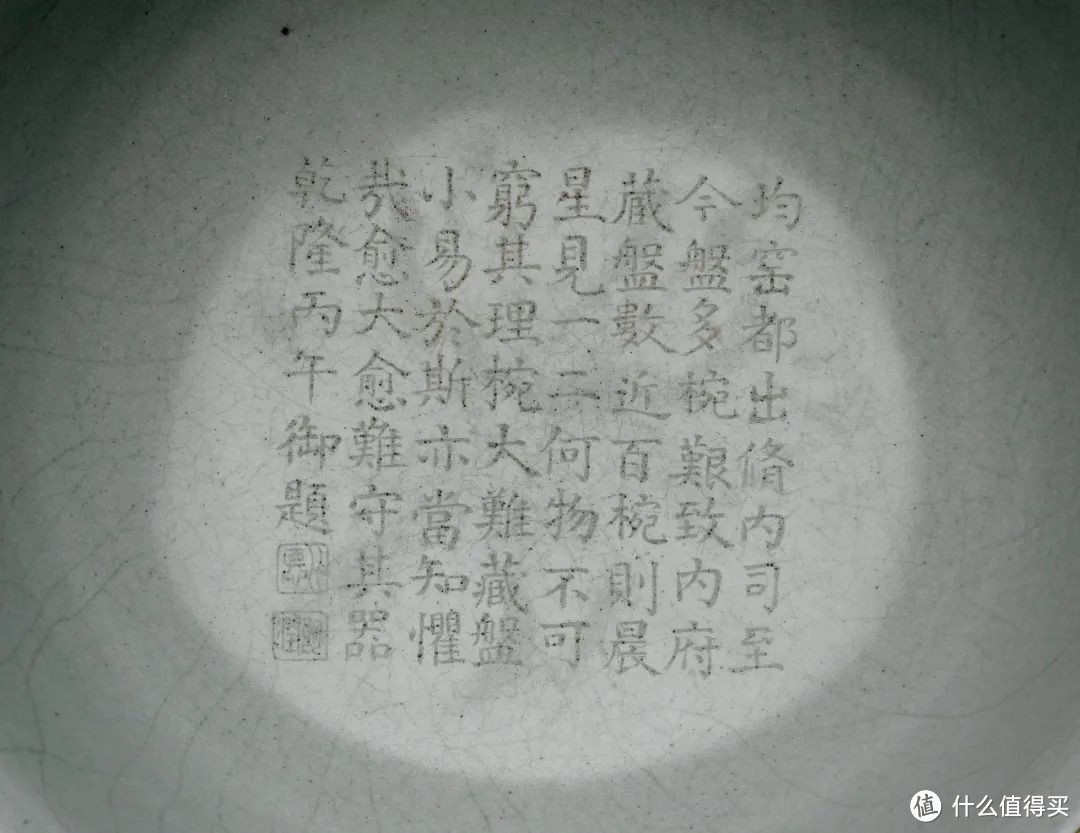 均窑都出脩内司至
今盤多椀艱致内府
蔵盤數近百椀則晨
星見一二何物不可
窮其理椀大難藏盤
小易於斯亦當知懼
㢤愈大愈難守其器
乾隆丙午御題
值 什么值得买